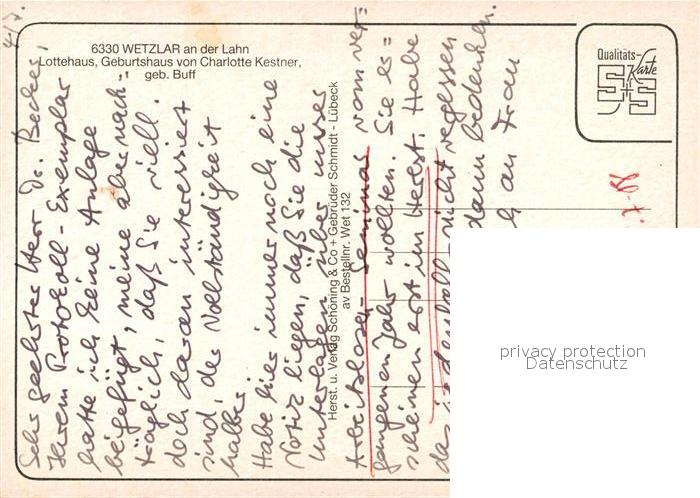 6330 WETZLAR an der Lahn
Lottehaus, Geburtshaus von Charlotte Kestner,
geb. Buff
Qualitäts-
Karte
S+S
Herst. u. Verlag Schöning & Co + Gebrüder Schmidt - Lübeck
av Bestellnr. Wet 132
4/7.
Sehr geehrter Herr Dr. Becker,
Ihrem Protokoll-Exemplar
hatte ich keine Anlage
beigefügt, meine aber nach=
träglich, daß Sie viell.
doch daran interessiert
sind, der Vollständigkeit
halber
Habe hier immer noch eine
Notiz liegen, daß Sie die
Unterlagen über unser
Arbeitslosen-Seminar vom ver=
gangenen Jahr wollten. Sie er=
scheinen erst im Herbst. Habe
nicht vergessen
dann bedenken.
an Frau
privacy protection
Datenschutz